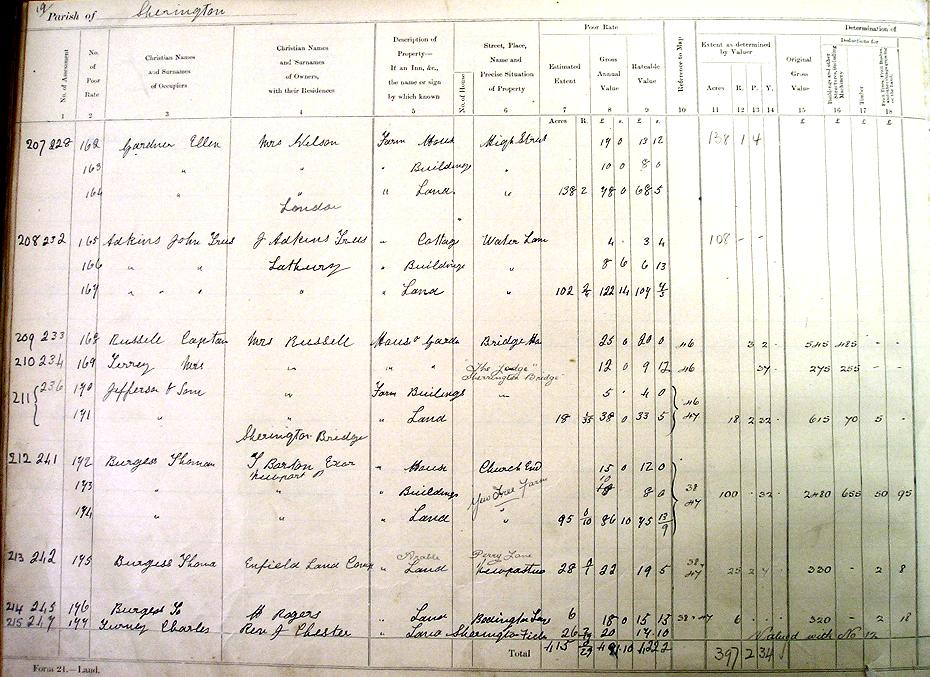 19 Parish of Sherington
Poor Rate
Determination of
No. of Assessment
No. of Poor Rate
Christian Names and Surnames of Occupiers
Christian Names and Surnames of Owners, with their Residences
Description of Property— If an Inn, &c., the name or sign by which known
No. of House
Street, Place, Name and Precise Situation of Property
Estimated Extent
Gross Annual Value
Rateable Value
Reference to Map
Extent as determined by Valuer
Acres R. P. Y.
Original Gross Value
Deductions for
Buildings and other Structures, including Machinery
Timber
1 2 3 4 5 6 7 8 9 10 11 12 13 14 15 16 17 18
Acres R. £ s. £ s. £ £ £ £
207 228 162 Gardner Ellen Mrs Nelson Farm House High Street 19 0 13 12 138 1 4
163 " " " Buildings " 10 0 8 0
164 " " " Land " 138 2 78 0 68 5
London
208 232 165 Adkins John Trees J Adkins Trees " Cottage Water Lane 4 - 3 4 108 - -
166 " " Lathbury " Buildings " 8 6 6 13
167 " " " " Land " 102 122 14 107
209 233 168 Russell Captain Mrs Russell House & Garden Bridge Ho 25 0 20 0 46 3 2 - 545 485 - -
210 234 169 Terrey Mrs " " " "The Lodge" Sherington Bridge 12 0 9 12 46 37 - 275 255 - -
211 236 170 Jefferson & Sons " Farm Buildings " 5 - 4 0 46
171 " " Land 18 38 0 33 5 47 18 2 22 - 615 70 5 -
Sherington Bridge
212 241 172 Burgess Thomas T. Barton Exor " House Church End 15 0 12 0
Newport P
173 " " " Buildings Yew Tree Farm 10 8 0 38 47 100 - 32 - 2480 655 50 95
174 " " " Land " 95 86 10 75
Arable Perry Lane
213 242 175 Burgess Thomas Enfield Land Comp " Land 28 22 19 5 38 47 25 2 330 - 2 8
214 245 176 Burgess Tho H Rogers " Land 6 18 0 15 15 38 47 6 - - 320 - 2 18
215 247 177 Charles Rev J Chester " Land Sherington Fields 26 20 17 10 Valued with No 12
Total 415 422 2 397 2 34
Form 21.—Land.